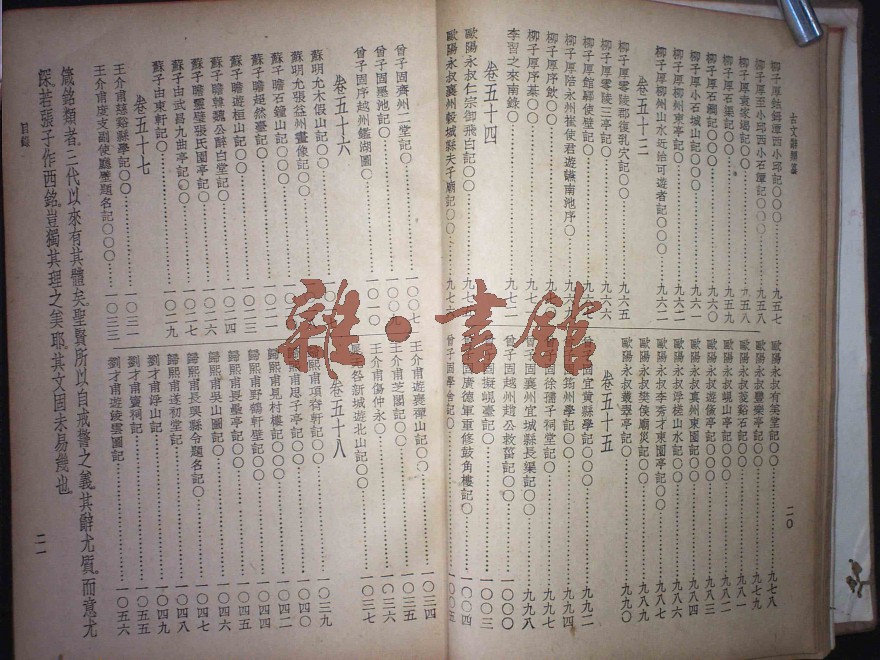 古文辭類纂
柳子厚鈷鉧潭西小邱記〇〇〇……九五七
柳子厚至小邱西小石潭記〇〇〇……九五八
柳子厚袁家渴記〇〇……九五八
柳子厚石渠記〇〇……九五九
柳子厚石澗記〇〇……九六〇
柳子厚小石城山記〇〇〇……九六一
柳子厚柳州東亭記〇……九六一
柳子厚柳州山水近治可遊者記〇〇〇……九六二
卷五十三
柳子厚零陵郡復乳穴記〇〇……九六五
柳子厚零陵三亭記〇……九六六
柳子厚館驛使壁記〇……
柳子厚陪永州崔使君遊讌南池序〇……九六九
柳子厚序飲〇〇……九七
柳子厚序棊〇〇……九七
李習之來南錄〇……九七二
卷五十四
歐陽永叔仁宗御飛白記〇〇……九七
歐陽永叔襄州穀城縣夫子廟記〇〇……九七
歐陽永叔有美堂記〇〇……九七八
歐陽永叔豐樂亭記〇〇〇……九七九
歐陽永叔菱谿石記〇〇……九八一
歐陽永叔峴山亭記〇〇〇……九八二
歐陽永叔遊儵亭記〇〇……九八三
歐陽永叔真州東園記〇〇……九八四
歐陽永叔浮槎山水記〇〇……九八六
歐陽永叔李秀才東園亭記〇……九八七
歐陽永叔樊侯廟災記〇〇……九八八
歐陽永叔叢翠亭記〇……九九〇
卷五十五
曾子固宜黃縣學記〇〇……九九二
筠州學記〇〇……九九四
曾子固徐孺子祠堂記〇〇……
曾子固襄州宜城縣長渠記〇〇……九九八
曾子固越州趙公救菑記〇〇……一〇〇〇
曾子固擬峴臺記〇〇……一〇〇三
曾子固廣德軍重修鼓角樓記〇……一〇〇四
曾子固學舍記〇〇……一〇〇五
二〇
曾子固齊州二堂記〇〇……一〇〇七
曾子固墨池記〇〇……一〇〇九
曾子固序越州鑑湖圖〇……一〇一〇
卷五十六
蘇明允木假山記〇〇……
蘇明允張益州畫像記〇〇……
蘇子瞻石鐘山記〇〇〇……
蘇子瞻超然臺記〇……
蘇子瞻遊桓山記〇〇……一〇二三
蘇子瞻韓魏公醉白堂記〇……一〇二四
蘇子瞻靈壁張氏園亭記〇〇……一〇二六
蘇子由武昌九曲亭記〇〇……一〇二七
蘇子由東軒記〇〇……一〇二九
卷五十七
王介甫慈谿縣學記〇〇……一〇三一
王介甫度支副使廳壁題名記〇〇〇……一〇三三
王介甫遊褒禪山記〇〇……一〇三四
王介甫芝閣記〇〇……一〇三六
王介甫傷仲永〇……一〇三七
晁无咎新城遊北山記〇〇……
卷五十八
歸熙甫項脊軒記〇〇……一〇三九
歸熙甫思子亭記〇〇〇……一〇四一
歸熙甫見村樓記〇〇〇……一〇四二
歸熙甫野鶴軒壁記〇〇〇……一〇四四
歸熙甫畏壘亭記〇〇……一〇四五
歸熙甫吳山圖記〇〇……一〇四六
歸熙甫長興縣令題名記〇……一〇四七
歸熙甫遂初堂記〇……一〇四八
劉才甫浮山記……
劉才甫竇祠記……一〇五五
劉才甫遊淩雲圖記……一〇五六
箴銘類者三代以來有其體矣聖賢所以自戒警之義其辭尤質而意尤
深若張子作西銘豈獨其理之美耶其文固未易幾也
目錄
二一
雜·書館